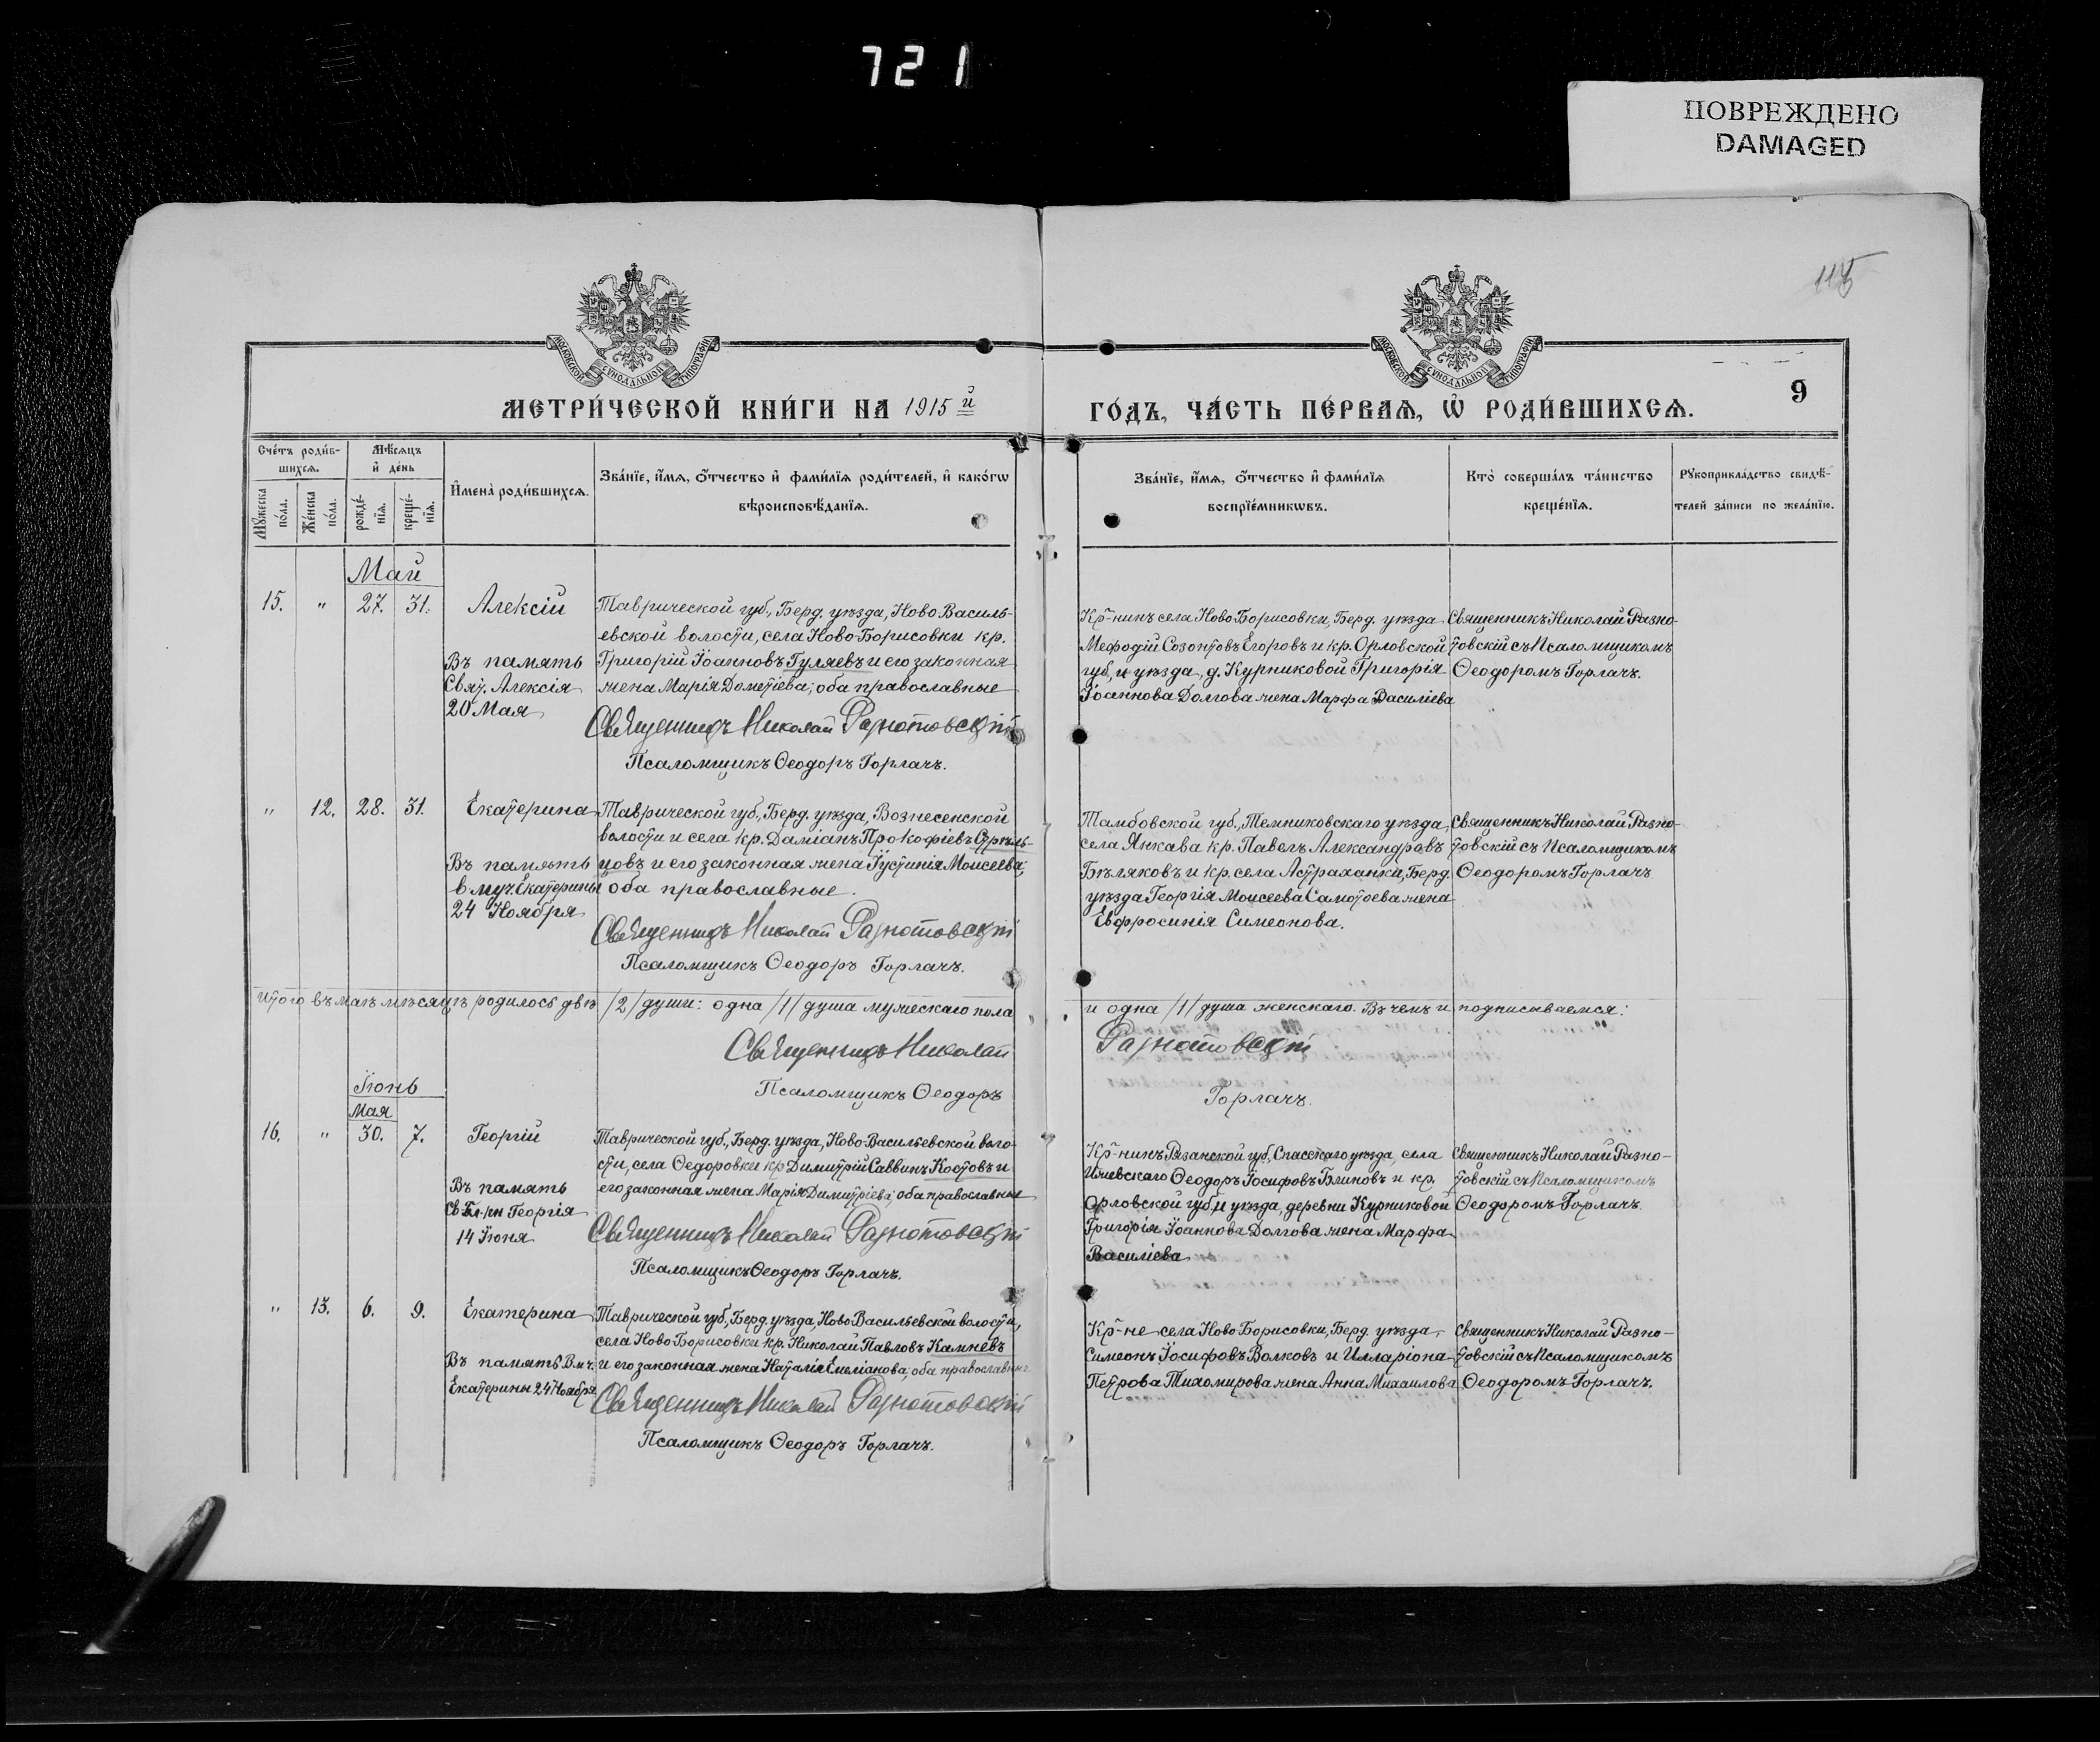 721
ПОВРЕЖДЕНО
DAMAGED
115
МОСКОВСКОЙ СѴНОДАЛЬНОЙ ТИПОГРАФІИ
МОСКОВСКОЙ СѴНОДАЛЬНОЙ ТИПОГРАФІИ
9
МЕТРИ́ЧЕСКОЙ КНИ́ГИ НА 1915 й
ГО́ДЪ, ЧА́СТЬ ПЕ́РВАѦ, Ѡ҆ РОДИ́ВШИХСѦ.
Сче́тъ роди́в-
шихсѧ.
Мѣ́сѧцъ
и҆ де́нь
Мꙋ́жеска
по́ла.
Же́нска
по́ла.
рожде́-
нїѧ.
креще́-
нїѧ.
И҆мена̀ роди́вшихсѧ.
Зва́нїе, и҆́мѧ, ѻ҆́тчество и҆ фами́лїѧ роди́телей, и҆ како́гѡ
вѣроисповѣ́данїѧ.
Зва́нїе, и҆́мѧ, ѻ҆́тчество и҆ фами́лїѧ
воспрїе́мникѡвъ.
Кто̀ соверша́лъ та́инство
креще́нїѧ.
Рꙋкоприкла́дство свидѣ́-
телей за́писи по жела́нїю.
Май
15. " 27. 31. Алексій
Въ память
Свят. Алексія
20 Мая
Таврической губ., Берд. уѣзда, Ново Василь-
евской волости, села Ново-Борисовки кр.
Григорій Іоанновъ Гуляевъ и его законная
жена Марія Дометіева; оба православные
Священникъ Николай Разнотовскій
Псаломщикъ Ѳеодоръ Горлачъ.
Кр-нинъ села Ново Борисовки, Берд. уѣзда
Мефодій Созонтовъ Егоровъ и кр. Орловской
губ. и уѣзда, д. Курниковой Григорія
Іоаннова Долгова жена Марфа Василіева
Священникъ Николай Разно-
товскій съ Псаломщикомъ
Ѳеодоромъ Горлачъ.
" 12. 28. 31. Екатерина
Въ память
в муч. Екатерины
24 Ноября
Таврической губ., Берд. уѣзда, Вознесенской
волости и села кр. Даміанъ Прокофіевъ Стрѣль-
цовъ и его законная жена Іустинія Моисеева;
оба православные.
Священникъ Николай Разнотовскій
Псаломщикъ Ѳеодоръ Горлачъ.
Тамбовской губ., Темниковскаго уѣзда,
села Янкава кр. Павелъ Александровъ
Бѣляковъ и кр. села Астраханки, Берд.
уѣзда Георгія Моисеева Самотоева жена
Евфросинія Симеонова.
Священникъ Николай Разно-
товскій съ Псаломщикомъ
Ѳеодоромъ Горлачъ
Итого въ маѣ мѣсяцѣ родилось двѣ /2/ души: одна /1/ душа мужескаго пола
и одна /1/ душа женскаго. Въ чемъ и подписываемся:
Священникъ Николай
Разнотовскій
Псаломщикъ Ѳеодоръ
Горлачъ.
Іюнь
Мая
16. " 30. 7. Георгій
Въ память
Св Бл. кн Георгія
14 Іюня
Таврической губ., Берд. уѣзда, Ново-Васильевской воло-
сти, села Ѳедоровки кр Димитрій Саввинъ Костовъ и
его законная жена Марія Димитріева; оба православные
Священникъ Николай Разнотовскій
Псаломщикъ Ѳеодоръ Горлачъ.
Кр-нинъ Рязанской губ, Спасскаго уѣзда, села
Ижевскаго Ѳеодоръ Іосифовъ Блиновъ и кр.
Орловской губ, и уѣзда, деревни Курниковой
Григорія Іоаннова Долгова жена Марфа
Василіева
Священникъ Николай Разно-
товскій съ Псаломщикомъ
Ѳеодоромъ Горлачъ.
" 13. 6. 9. Екатерина
Въ память В.м-ч.
Екатерины 24 Ноября
Таврической губ, Берд. уѣзда, Ново Васильевской волости,
села Ново Борисовки кр. Николай Павловъ Камневъ
и его законная жена Наталія Емеліанова; оба православные
Священникъ Николай Разнотовскій
Псаломщикъ Ѳеодоръ Горлачъ.
Кр-не села Ново Борисовки, Берд. уѣзда,
Симеонъ Іосифовъ Волковъ и Илларіона
Петрова Тихомирова жена Анна Михаилова
Священникъ Николай Разно-
товскій съ Псаломщикомъ
Ѳеодоромъ Горлачъ.